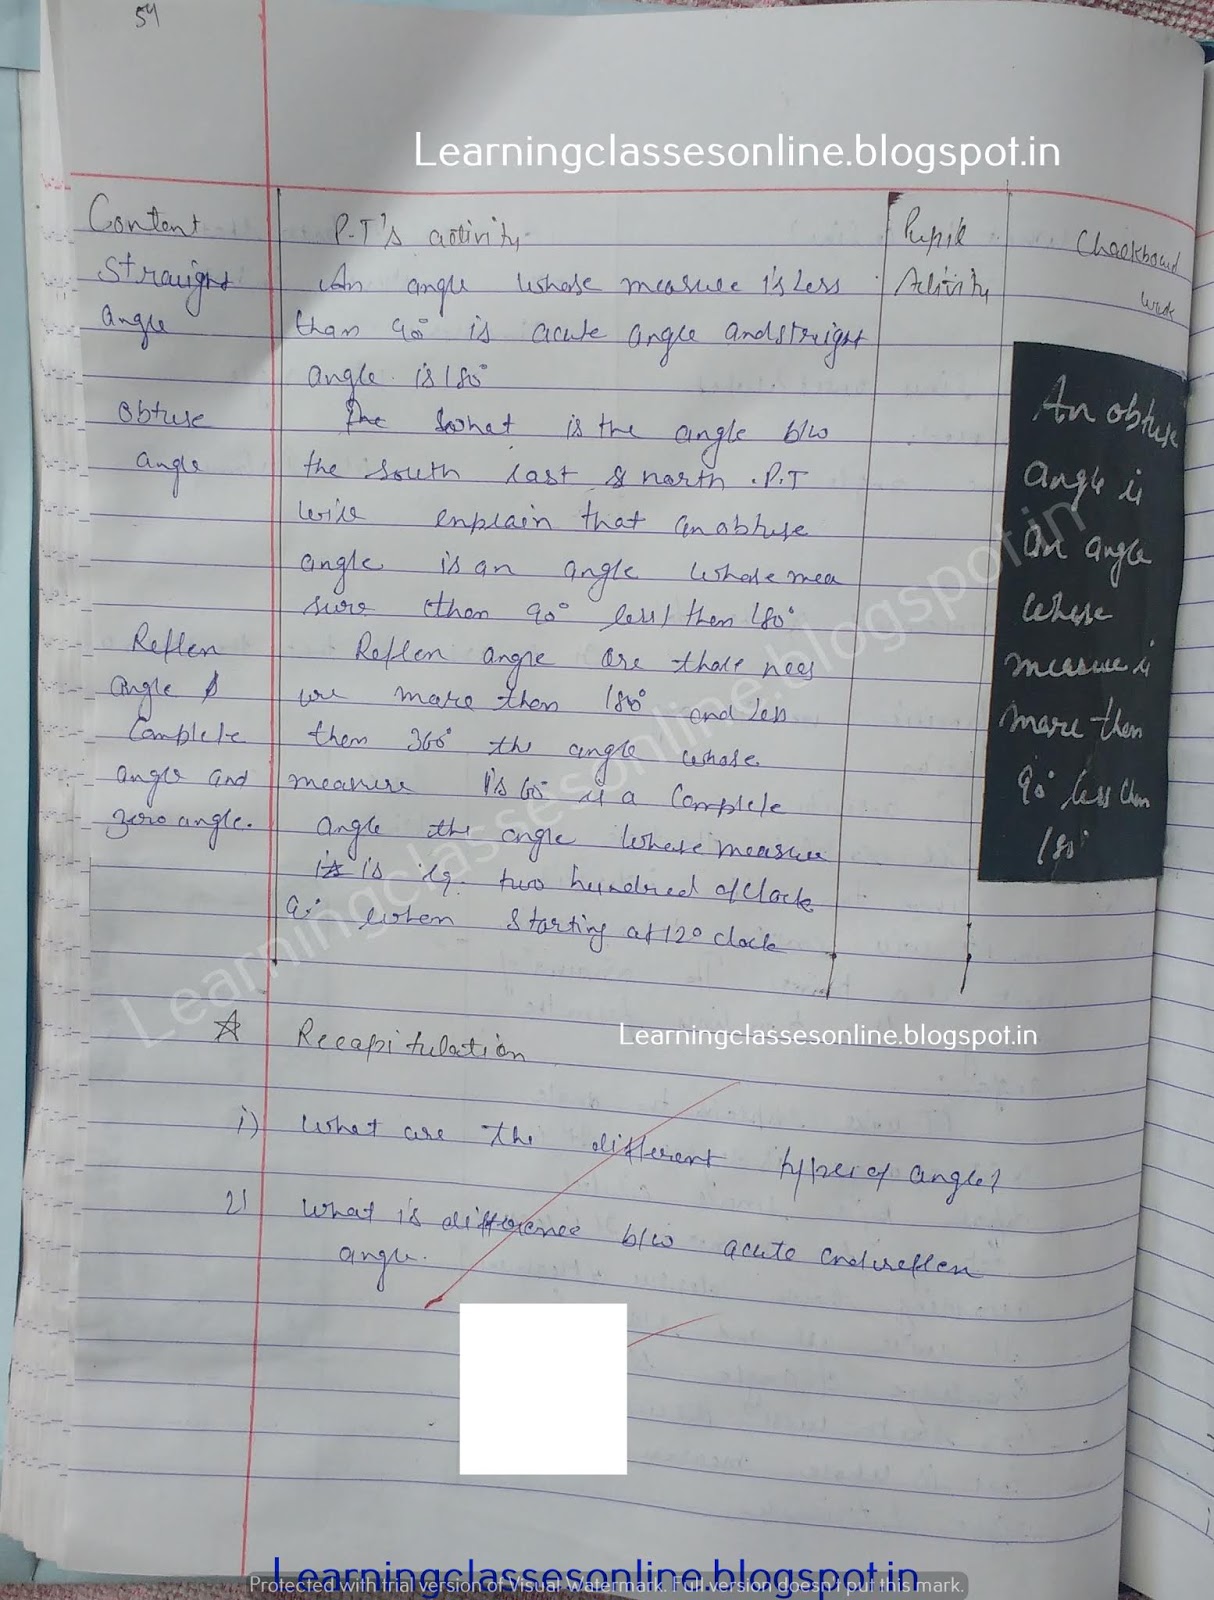 54
Learningclassesonline.blogspot.in
Content
P.T's activity
Pupil
Activity
Chalkboard
work
Straight
angle
An angle whose measure is less
than 90° is acute angle and stright
angle is 180°
Obtuse
angle
The what is the angle b/w
the south east & north . P.T
will explain that an obtuse
angle is an angle whose mea
sure then 90° less then 180°
Reflex
angle &
Complete
angle and
zero angle.
Reflex angle are those
more then 180° and less
then 360° the angle whose
measure is is a complete
angle the angle whose measure
is two hundred o'clock
when starting at 12 o clock
An obtuse
angle is
an angle
whose
measure is
more then
90° less then
180°
Learningclassesonline.blogspot.in
Recapitulation
Learningclassesonline.blogspot.in
i) What are the different types of angle?
2) What is difference b/w acute and reflex
angle.
Learningclassesonline.blogspot.in
Protected with trial version of Visual Watermark. Full version doesn't put this mark.